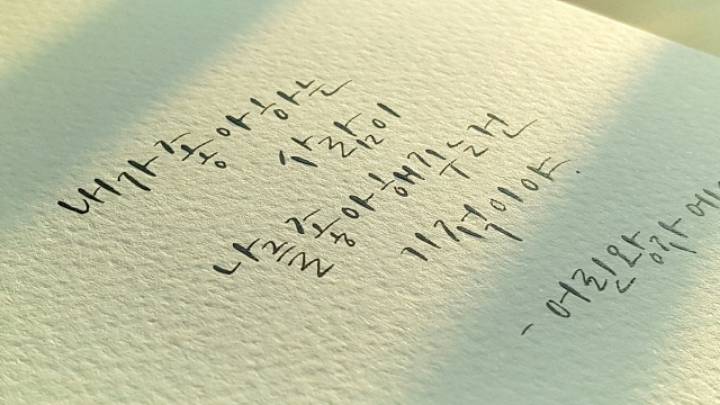 내가 좋아하는
사람이
나를 좋아해주는건
기적이야.
- 어린왕